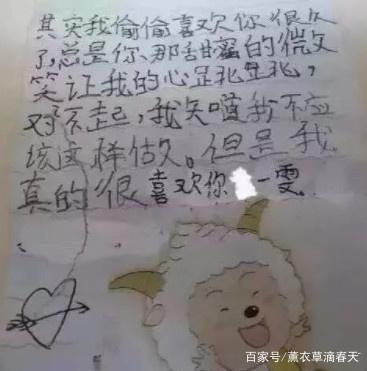 其实我偷偷喜欢你很久
了,总是你、那甜蜜的微
笑让我的心
对不起,我知道我不应
该这样做。但是我
真的很喜欢你 一雯
百家号/薰衣草滴春天